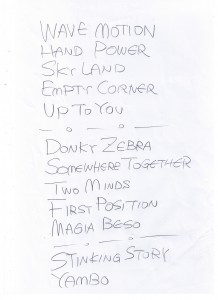 WAVE MOTION
HAND POWER
SKY LAND
EMPTY CORNER
UP TO YOU
DONKY ZEBRA
SOMEWHERE TOGETHER
TWO MINDS
FIRST POSITION
MAGIA BESO
STINKING STORY
YAMBO